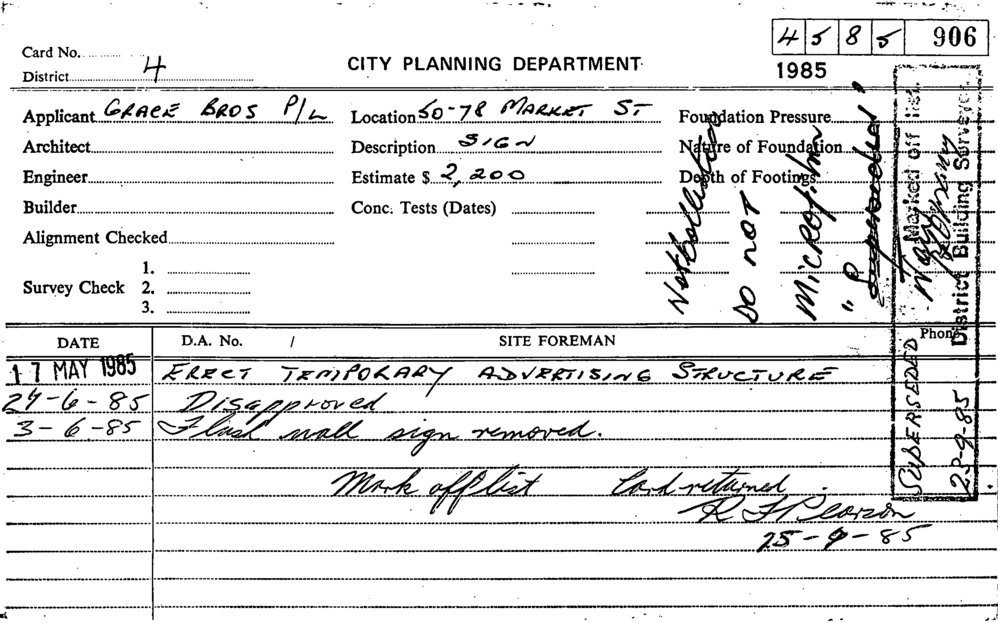 4 5 8 5 906
Card No.
District 4
CITY PLANNING DEPARTMENT
1985
Applicant GRACE BROS P/L Location 50-78 MARKET ST Foundation Pressure
Architect Description SIGN Nature of Foundation
Engineer Estimate $ 2,200 Depth of Footings
Builder Conc. Tests (Dates)
Alignment Checked
1.
Survey Check 2.
3.
DO NOT
MICROFILM
"Superseded"
Marked off list
District Building Surveyor
SUPERSEDED
DATE D.A. No. / SITE FOREMAN Phone
17 MAY 1985 ERECT TEMPORARY ADVERTISING STRUCTURE
24-6-85 Disapproved
3-6-85 Flush wall sign removed.
Mark off list Card returned.
R F Pearson
25-9-85